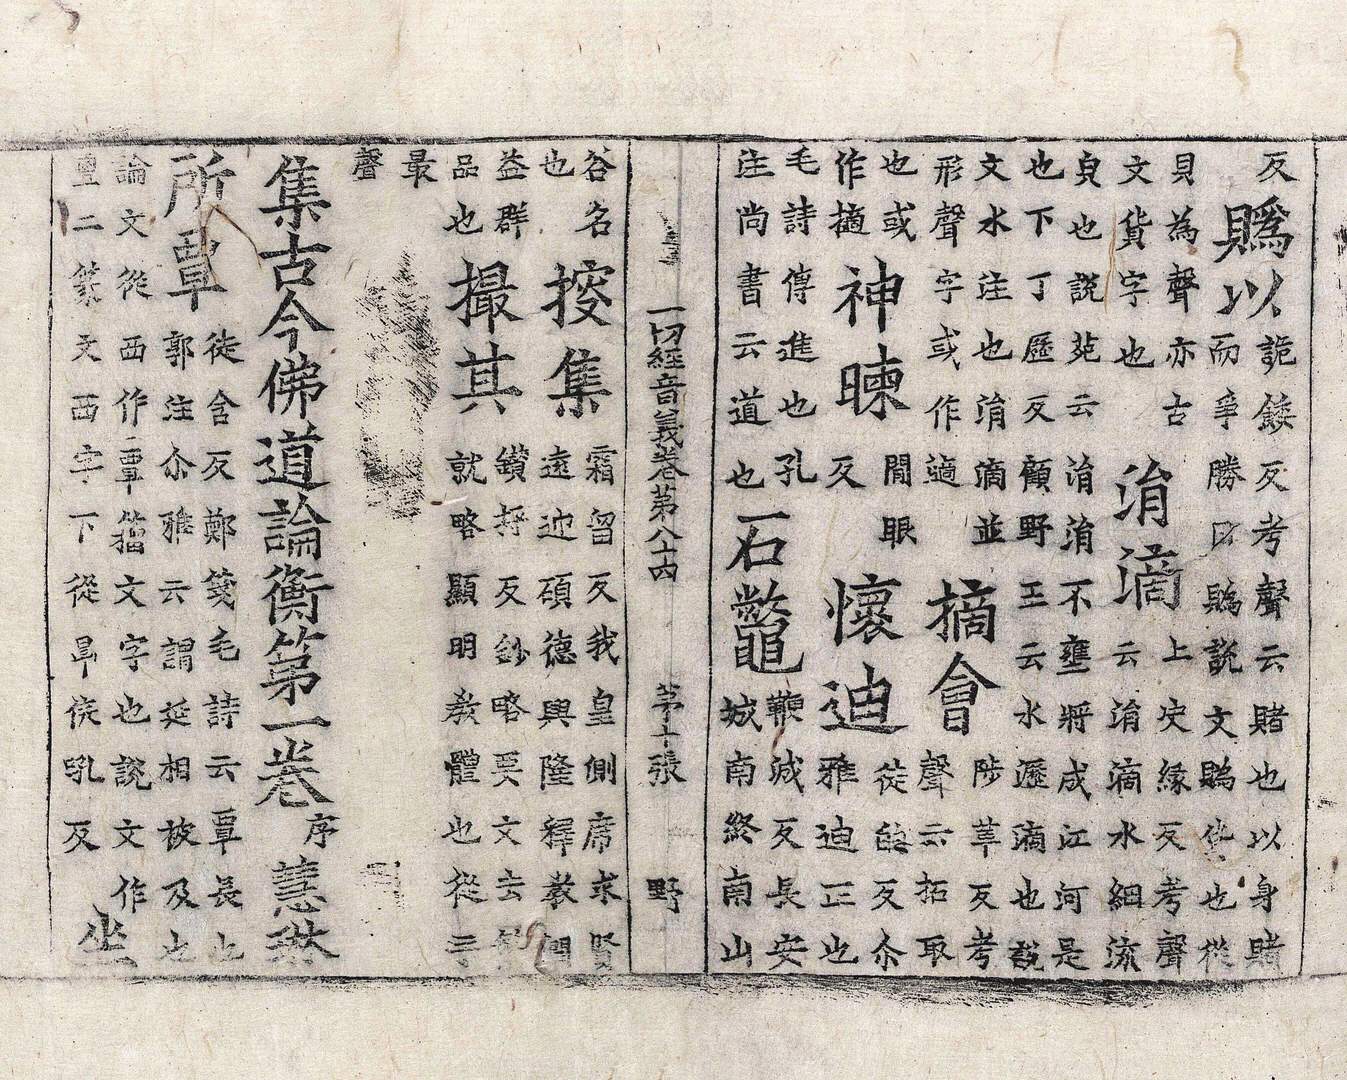 反
䞈以
詭餧反考聲云賭也以身賭
而爭勝曰䞈說文䞈也從
貝為聲亦古
文貨字也
涓滴
上決緣反考聲
云涓滴水細流
貞也說苑云涓涓不壅將成江河是
也下丁歷反顧野王云水瀝滴也說
文水注也涓滴並
形聲字或作適
摘會
陟革反考
聲云拓取
也或
作擿
神暕
閒眼
反
懷迪
徒的反尒
雅迪正也
毛詩傳進也孔
注尚書云道也
石鼈
鞭滅反長安
城南終南山
一切經音義卷第八十四 第十張 野
谷名
也
搜集
霜留反我皇側席求賢
遠迎碩德興隆釋教開
益群
品也
撮其
鑽捋反鈔略要文去繁
就略顯明教體也從手
最
聲
集古今佛道論衡第一卷 序 慧琳
所覃
徒含反鄭箋毛詩云覃長也
郭注尒雅云謂延相被及也
論文從西作覃籀文字也說文作
二篆文西字下從㫗侯吼反
坐